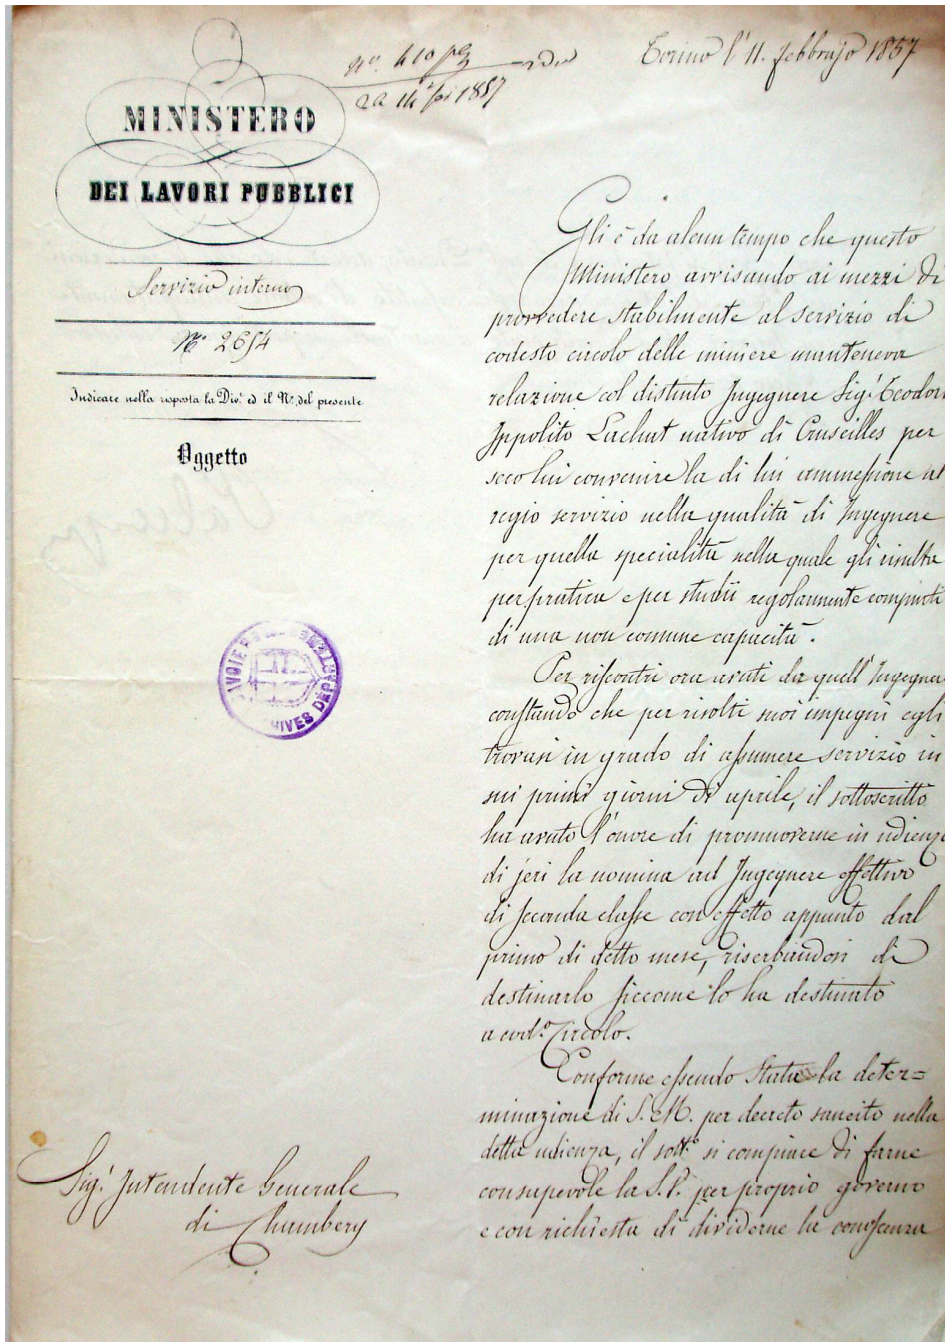 Torino l'11. febbrajo 1857
MINISTERO
DEI LAVORI PUBBLICI
Servizio interno
N.° 2654
Indicare nella risposta la Div.e ed il N.° del presente
Oggetto
Gli è da alcun tempo che questo
Ministero avvisando ai mezzi di
provvedere stabilmente al servizio di
codesto circolo delle miniere manteneva
relazione col distinto Ingegnere Sig.r Teodoro
Ippolito Lachat nativo di Cruseilles per
seco lui convenire la di lui ammessione al
regio servizio nella qualità di Ingegnere
per quella specialità nella quale gli risulta
per pratica e per studii regolarmente compiuti
di una non comune capacità.
Per riscontri ora avuti da quell'Ingegnere
constando che per risolti suoi impegni egli
trovasi in grado di assumere servizio in
sui primi giorni di aprile, il sottoscritto
ha avuto l'onore di promuoverne in udienza
di jeri la nomina ad Ingegnere effettivo
di seconda classe con effetto appunto dal
primo di detto mese, riserbandosi di
destinarlo siccome lo ha destinato
a cod.° Circolo.
Conforme essendo stata la deter=
minazione di S. M. per decreto sancito nella
detta udienza, il sott.° si compiace di farne
consapevole la S. V. per proprio governo
e con richiesta di dividerne la conoscenza
Sig.r Intendente Generale
di Chambery